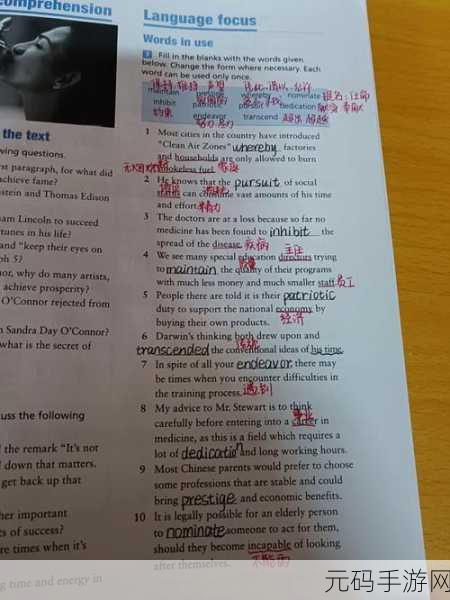 omprehension
the text
wing questions.
st paragraph, for what did
achieve fame?
stein and Thomas Edison
am Lincoln to succeed
tunes in his life?
and "keep their eyes on
ph 5?
nor, why do many artists,
achieve prosperity?
O'Connor rejected from
n Sandra Day O'Connor?
what is the secret of
uss the following
d the remark "It's not
down that matters.
get back up that
her important
ts of success?
re times when it's
g time and energy in
Language focus
Words in use
Fill in the blanks with the words given
below. Change the form where necessary. Each
word can be used only once.
maintain prestige whereby nominate 提名;任命
inhibit patriotic pursuit dedication
约束 endeavor transcend 超出 超越
1 Most cities in the country have introduced
"Clean Air Zones" whereby factories
and households are only allowed to burn
smokeless fuel.
2 He knows that the pursuit of social
status can consume vast amounts of his time
and effort. 精力
3 The doctors are at a loss because so far no
medicine has been found to inhibit the
spread of the disease. 疾病
主任
4 We see many special education directors trying
to maintain the quality of their programs
with much less money and much smaller staff. 员工
5 People there are told it is their patriotic
duty to support the national economy by
buying their own products. 经济
6 Darwin's thinking both drew upon and
transcended the conventional ideas of his time.
7 In spite of all your endeavor, there may
be times when you encounter difficulties in
the training process. 遇到
8 My advice to Mr. Stewart is to think
carefully before entering into a career in
medicine, as this is a field which requires a
lot of dedication and long working hours.
9 Most Chinese parents would prefer to choose
some professions that are stable and could
bring prestige and economic benefits.
10 It is legally possible for an elderly person
to nominate someone to act for them,
should they become incapable of looking
after themselves. 不能的
元码手游网